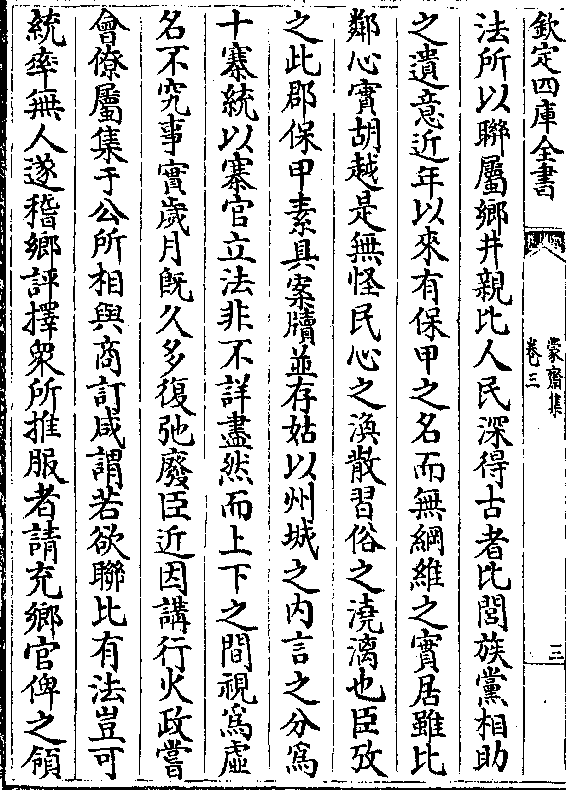 欽定四庫全書
蒙齋集
卷三
三
法所以聯屬鄉井親比人民深得古者比閭族黨相助
之遺意近年以來有保甲之名而無綱維之實居雖比
鄰心實胡越是無怪民心之渙散習俗之澆漓也臣攷
之此郡保甲素具案牘並存姑以州城之内言之分為
十寨統以寨官立法非不詳盡然而上下之間視為虛
名不究事實歲月既久多復弛廢臣近因講行火政嘗
會僚屬集于公所相與商訂咸謂若欲聯比有法豈可
統率無人遂稽鄉評擇衆所推服者請充鄉官俾之領